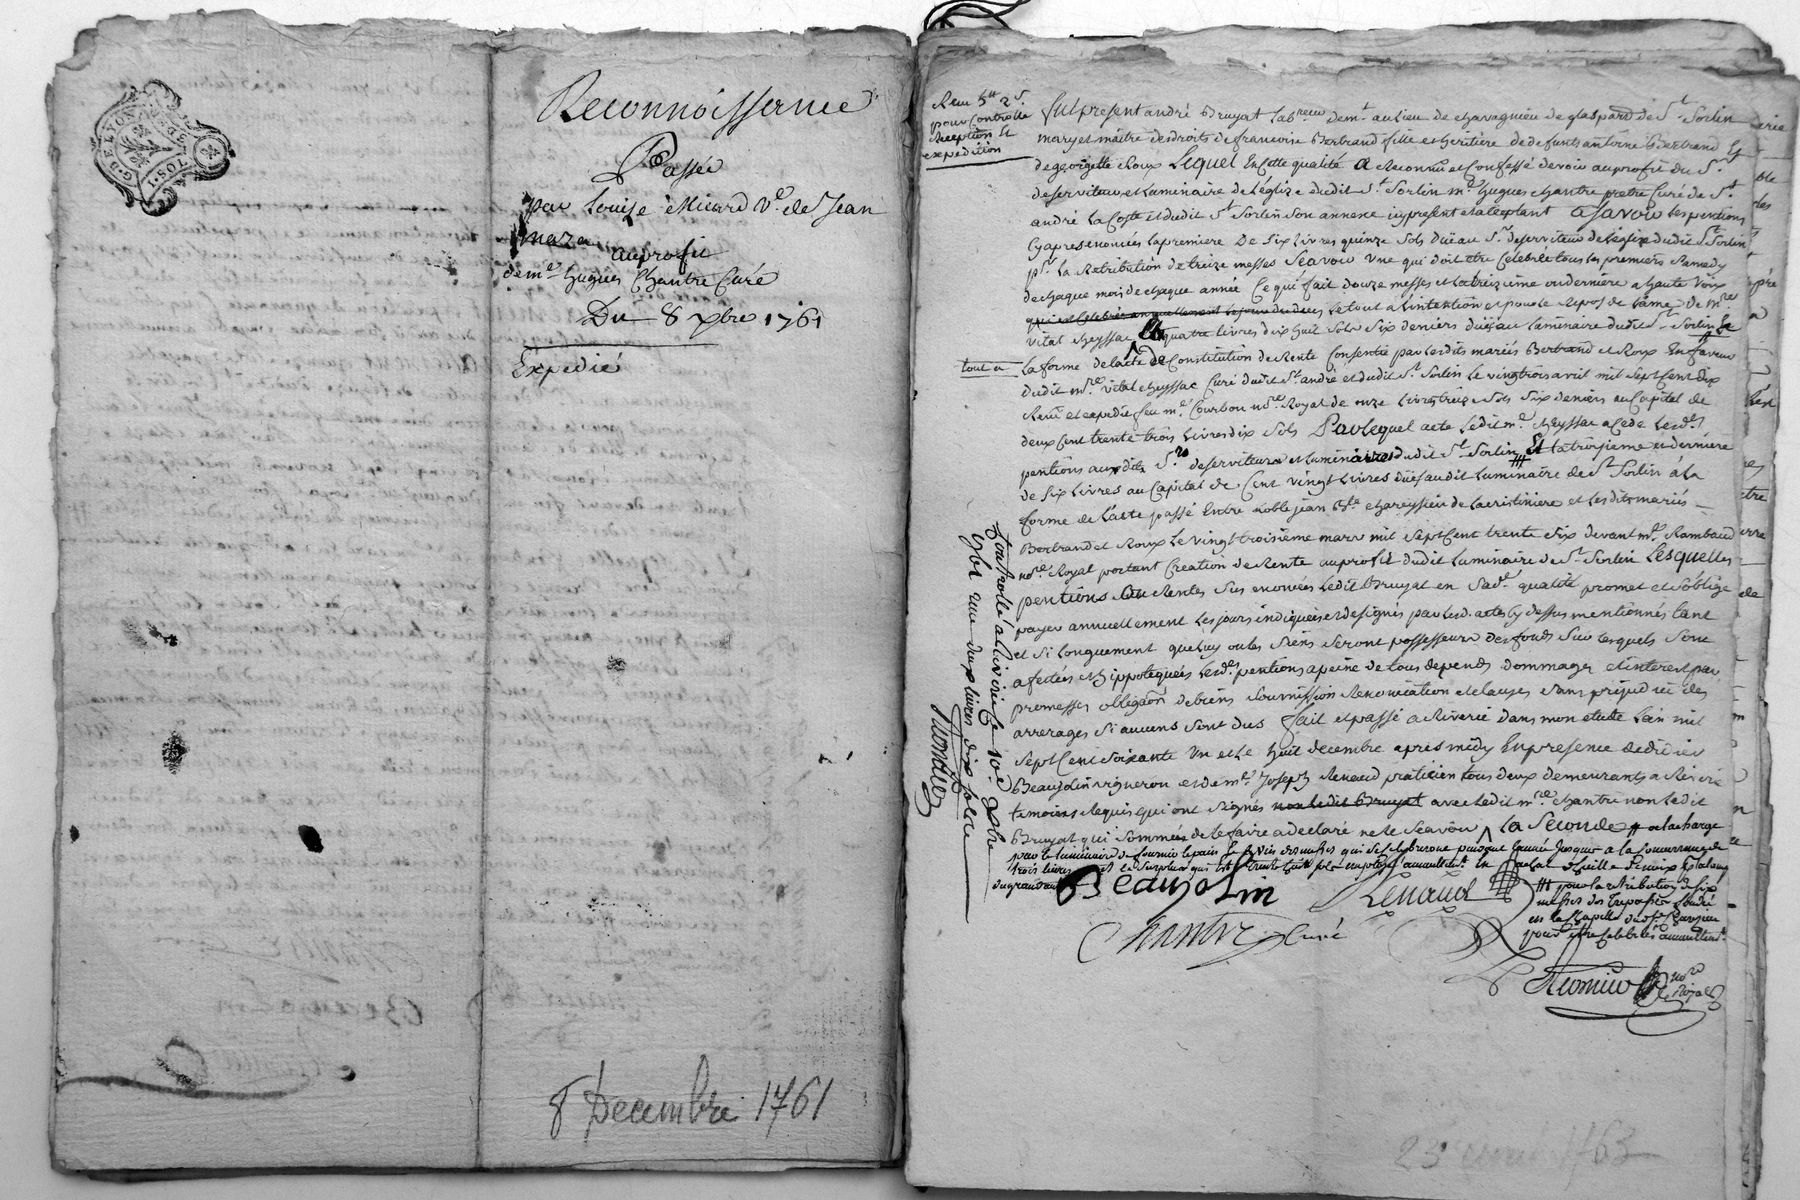 G. DE LYON
2 SOLS
Reconnoissance
Passée
par Louise Micard Ve. de Jean
maza
au profit
de me. hugues Chantre Curé
Du 8 xbre 1761
Expedié
8 Decembre 1761
Receu 5tt 2s.
pour Controlle
Reception et
expedition
fut present andré Bruyat laboureur demt. au lieu de chavagnieu de glaspard de St. Sorlin
mary et maître des droits de francoise Bertrand fille et heritiere de defunts antoine Bertrand Et
de georgette Roux Lequel En cette qualité a Reconnu et Confessé devoir au profit du Sr.
deserviteur et Luminaire de l'église dudit St. Sorlin me. hugues chantre pretre Curé de St.
andré La Coste et dudit St. Sorlin Son annexe icy present et acceptant a Savoir Les pentions
Cy apres enoncées La premiere De Six Livres quinze Sols düe au Sr. deserviteur de L'eglize dudit St. Sorlin
pr. La Retribution de treize messes Scavoir Une qui doit etre Celebrée tous les premiers Samedy
de chaque mois de chaque année Ce qui fait douze messes et La treizieme ou derniere a haute Voix
Le tout a L'intention et pour le Repos de L'ame de mre.
vital cheyssac quatre Livres dix huit Sols Six deniers düe au Luminaire dudit St. Sorlin
tout a
La forme de l'acte de Constitution de Rente Consentie par Lesdits mariés Bertrand et Roux En faveur
dudit mre. vital cheyssac Curé dudit St. andré et dudit St. Sorlin Le vingt trois avril mil Sept Cent dix
Receu et expedié feu me. Courbon nore. Royal de onze Livres treize Sols Six deniers au Capital de
deux Cent trente trois Livres dix Sols Par lequel acte Ledit mre. cheyssac a Cedé Lesd.
pentions auxdits Srs. deserviteur et Luminaires dudit St. Sorlin Et La troisieme et derniere
de Six Livres au Capital de Cent vingt Livres düe audit Luminaire de St. Sorlin à La
forme de L'acte passé Entre noble jean Bte. chareyssieu de La cristiniere et Lesdits mariés
Bertrand et Roux Le vingt troisieme mars mil Sept Cent trente Six devant me. Rambaud
nore. Royal portant Creation de Rente au profit dudit Luminaire de St. Sorlin Lesquelles
pentions ou Rentes Sus enoncées Ledit Bruyat en Sad. qualité promet et S'oblige
payer annuellement Les jours indiqués et designés par Lesd. actes Cy dessus mentionnés tant
et Si Longuement que Luy ou les Siens Seront possesseurs des fonds Sur Lesquels Sont
afectées et hippotequées Lesd. pentions a peine de tous depends dommages et interest par
promesses obligaon. de biens Soumission Renonciation et clauses Sans prejudice des
arrerages Si aucuns Sont dus fait et passé a Riverie dans mon etude L'an mil
Sept Cent Soixante Un et Le huit decembre apres midy En presence de didier
Beaujolin vigneron et de me. Joseph Renaud praticien tous deux demeurants a Riverie
temoins Requis qui ont Signés non Ledit Bruyat avec Ledit mre. chantre non Ledit
Bruyat qui Sommé de Le faire a declaré ne le Scavoir La Seconde a la charge
par le luminaire de fournir le pain le vin des messes qui Se celebreront pendant l'année jusques a la Concurrance de
trois livres et le Surplus qui est trente huit Sols
pour la retribution de Six
messes des trepassés
en la Chapelle
pour etre Celebrées annuellemt.
Beaujolin
Renaud
Chantre Curé
nore.
Royal
Controllé a Riverie le 10e. xbre
1761 reçu deux livres dix Sols
23 1763